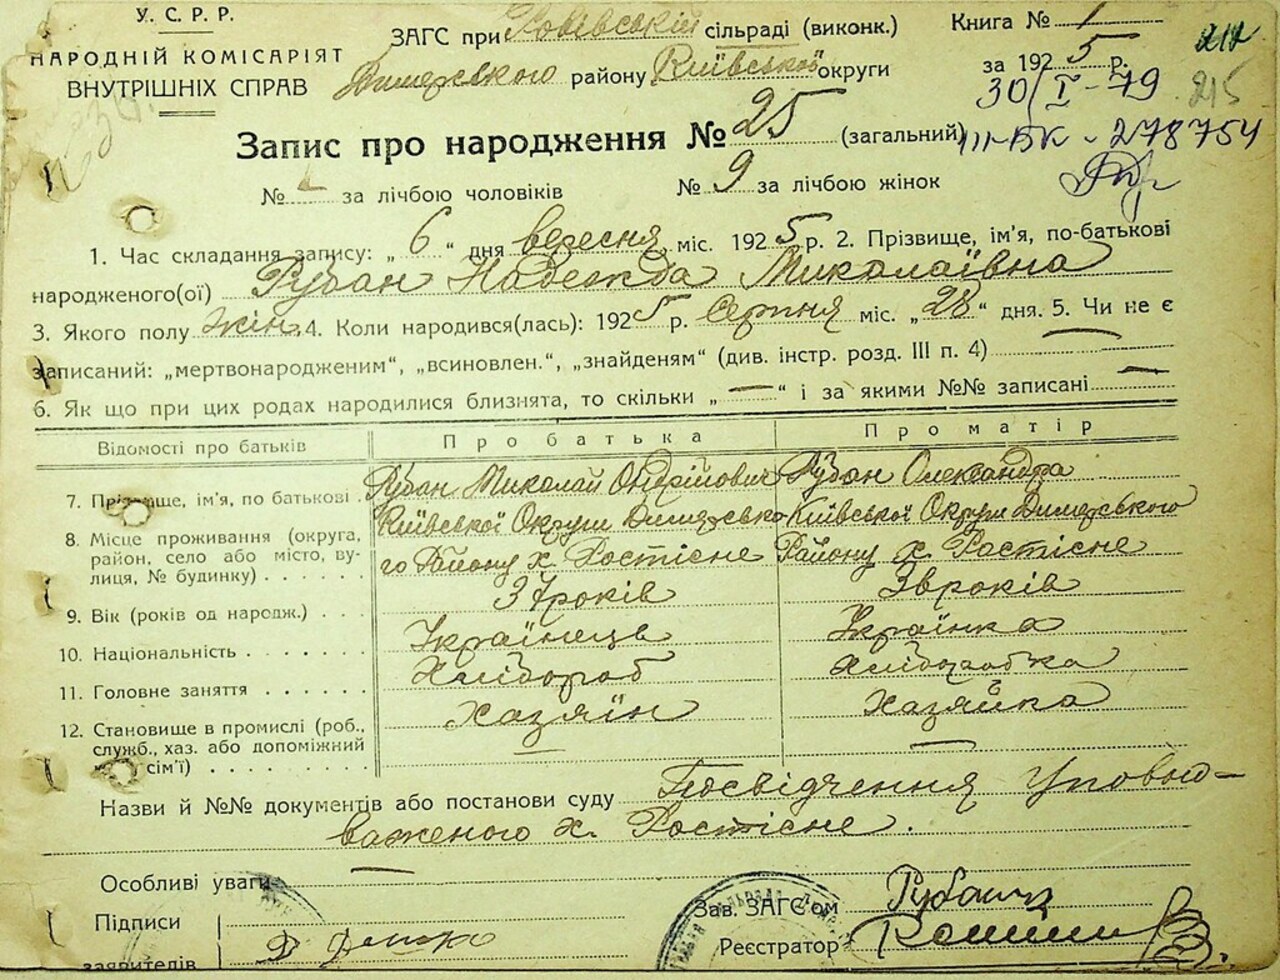 У.С.Р.Р.
НАРОДНІЙ КОМІСАРІЯТ
ВНУТРІШНІХ СПРАВ
ЗАГС при сільраді (виконк.)
Димерського району Київської округи
Книга № 1
за 1925 р.
212
215
30/I-79
III-БК - 278754
Запис про народження № 25 (загальний)
№ за лічбою чоловіків № 9 за лічбою жінок
1. Час складання запису: „ 6 “ дня вересня міс. 1925 р. 2. Прізвище, ім'я, по-батькові
народженого(ої) Рубан Надежда Миколаївна
3. Якого полу жін. 4. Коли народився(лась): 1925 р. Серпня міс. „28“ дня. 5. Чи не є
записаний: „мертвонародженим“, „всиновлен.“, „знайденям“ (див. інстр. розд. III п. 4) —
6. Як що при цих родах народилися близнята, то скільки „ — “ і за якими №№ записані —
Відомості про батьків Про батька Про матір
7. Прізвище, ім'я, по батькові . Рубан Миколай Ондрійович Рубан Олександра
8. Місце проживання (округа, район, село або місто, вулиця, № будинку) . . . . . .
Київської Округи Димерсько-
го Району х. Ростісне
Київської Округи Димерського
Району х. Ростісне
9. Вік (років од народж.) . . . 37 років 38 років
10. Національність . . . . . . . Українець Українка
11. Головне заняття . . . . . . Хлібороб Хліборобка
12. Становище в промислі (роб., служб., хаз. або допоміжний сім'ї) . . . . . . . . Хазяїн Хазяйка
Назви й №№ документів або постанови суду Посвідчення Уповно-
важеного х. Ростісне.
Особливі уваги —
Підписи
заявителів
Зав. ЗАГС'ом
Реєстратор